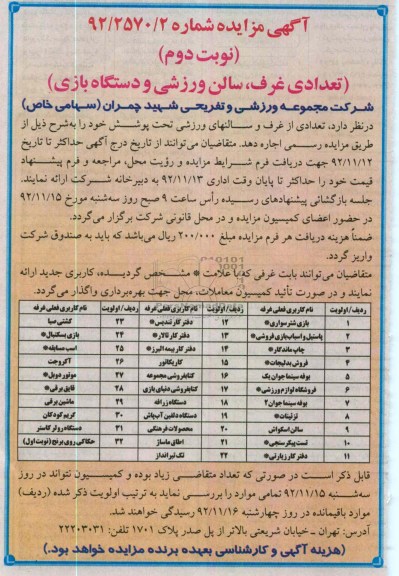 آگهی مزایده شماره ۹۲/۲۵۷۰/۲
(نوبت دوم)
(تعدادی غرف، سالن ورزشی و دستگاه بازی)
شرکت مجموعه ورزشی و تفریحی شهید چمران (سهامی خاص)
درنظر دارد، تعدادی از غرف و سالنهای ورزشی تحت پوشش خود را به‌شرح ذیل از
طریق مزایده رسمی اجاره دهد. متقاضیان می‌توانند از تاریخ درج آگهی حداکثر تا تاریخ
۹۲/۱۱/۱۲ جهت دریافت فرم شرایط مزایده و رؤیت محل، مراجعه و فرم پیشنهاد
قیمت خود را حداکثر تا پایان وقت اداری ۹۲/۱۱/۱۳ به دبیرخانه شرکت ارائه نمایند.
جلسه بازگشائی پیشنهادهای رسیده رأس ساعت ۹ صبح روز سه‌شنبه مورخ ۹۲/۱۱/۱۵
در حضور اعضای کمیسیون مزایده و در محل قانونی شرکت برگزار می‌گردد.
ضمناً هزینه دریافت هر فرم مزایده مبلغ ۲۰۰/۰۰۰ ریال می‌باشد که باید به صندوق شرکت
واریز گردد.
متقاضیان می‌توانند بابت غرفی که با علامت * مشخص گردیده، کاربری جدید ارائه
نمایند و در صورت تأئید کمیسیون معاملات، محل جهت بهره‌برداری واگذار می‌گردد.
ردیف / اولویت نام کاربری فعلی غرفه ردیف / اولویت نام کاربری فعلی غرفه ردیف / اولویت نام کاربری فعلی غرفه
۱ بازی شترسواری* ۱۲ دفتر کار تندیس* ۲۳ کشتی صبا
۲ پاستیل و اسباب‌بازی فروشی* ۱۳ دفتر کار تالار* ۲۴ بازی بسکتبال*
۳ چاپ ماندگار* ۱۴ دفتر کار بیمه البرز* ۲۵ اسب مسابقه*
۴ فروش بدلیجات* ۱۵ کاریکاتور ۲۶ آکروجت
۵ بوفه سینما جوان یک ۱۶ کتابفروشی مجموعه ۲۷ موتور دوبل*
۶ فروشگاه لوازم ورزشی* ۱۷ کتابفروشی دنیای بازی ۲۸ قایق برقی*
۷ بوفه سینما جوان۲ ۱۸ دستگاه زرافه ۲۹ ماشین برقی
۸ تزئینات* ۱۹ دستگاه دلفین آب‌پاش ۳۰ گریم کودکان
۹ سالن اسکواش ۲۰ محصولات فرهنگی ۳۱ دستگاه رولر کاستر
۱۰ تست پیکرسنجی* ۲۱ اطاق ماساژ ۳۲ حکاکی روی برنج (نوبت اول)
۱۱ دفتر کار زیارتی* ۲۲ تک تیرانداز
قابل ذکر است در صورتی که تعداد متقاضی زیاد بوده و کمیسیون نتواند در روز
سه‌شنبه ۹۲/۱۱/۱۵ تمامی موارد را بررسی نماید به ترتیب اولویت ذکر شده (ردیف)
موارد باقیمانده در روز چهارشنبه ۹۲/۱۱/۱۶ رسیدگی خواهند شد.
آدرس: تهران - خیابان شریعتی بالاتر از پل صدر پلاک ۱۷۰۱ تلفن: ۲۲۲۰۳۰۳۱
(هزینه آگهی و کارشناسی بعهده برنده مزایده خواهد بود.)